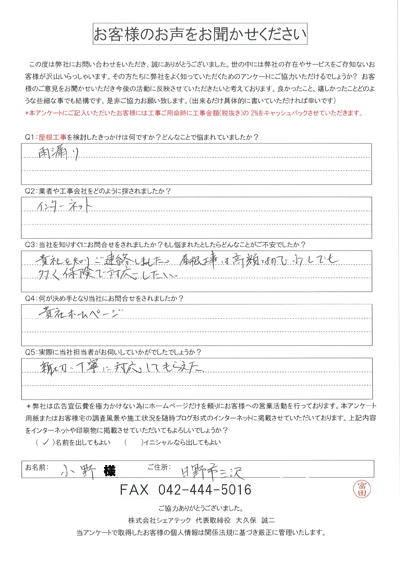 お客様のお声をお聞かせください
この度は弊社にお問い合わせをいただき、誠にありがとうございます。世の中には弊社の存在やサービスをご存知ないお
客様が沢山いらっしゃいます。その方たちに弊社をよく知っていただくためのアンケートにご協力いただけるでしょうか？ お客
様のご意見をお聞かせいただき今後の活動に反映させていただきたいと考えております。良かったこと、嬉しかったことどのよ
うな些細な事でも結構です。是非ご協力お願い致します。（出来るだけ具体的に書いていただければ幸いです）
*本アンケートにご記入いただいたお客様には工事ご用命時に工事金額(税抜き)の 2%をキャッシュバックさせていただきます。
Q1:屋根工事を検討したきっかけは何ですか？どんなことで悩まれていましたか？
雨漏り
Q2:業者や工事会社をどのように探されましたか？
インターネット
Q3:当社を知りすぐにお問合せをされましたか？もし悩まれたとしたらどんなことがご不安でしたか？
貴社を知りご連絡しました。屋根工事は高額なので少しでも
多く保険で対応したい。
Q4:何が決め手となり当社にお問合せをされましたか？
貴社ホームページ
Q5:実際に当社担当者がお伺いしていかがでしたでしょうか？
親切、丁寧に対応してもらえた。
＊弊社は広告宣伝費を極力かけない為にホームページだけを頼りにお客様への営業活動を行っております。本アンケート
用紙またはお客様宅の調査風景や施工状況を随時ブログ形式のインターネットに掲載させていただいております。上記内容
をインターネットや印刷物に掲載させていただいてもよろしいでしょうか？
（ ✓ ）名前を出してもよい （ ）イニシャルなら出してもよい
お名前: 小野 様 ご住所: 日野市三沢
FAX 042-444-5016
富田
ご協力ありがとうございました。
株式会社シェアテック 代表取締役 大久保 誠二
当アンケートで取得したお客様の個人情報は関係法規に基づき厳正に管理いたします。